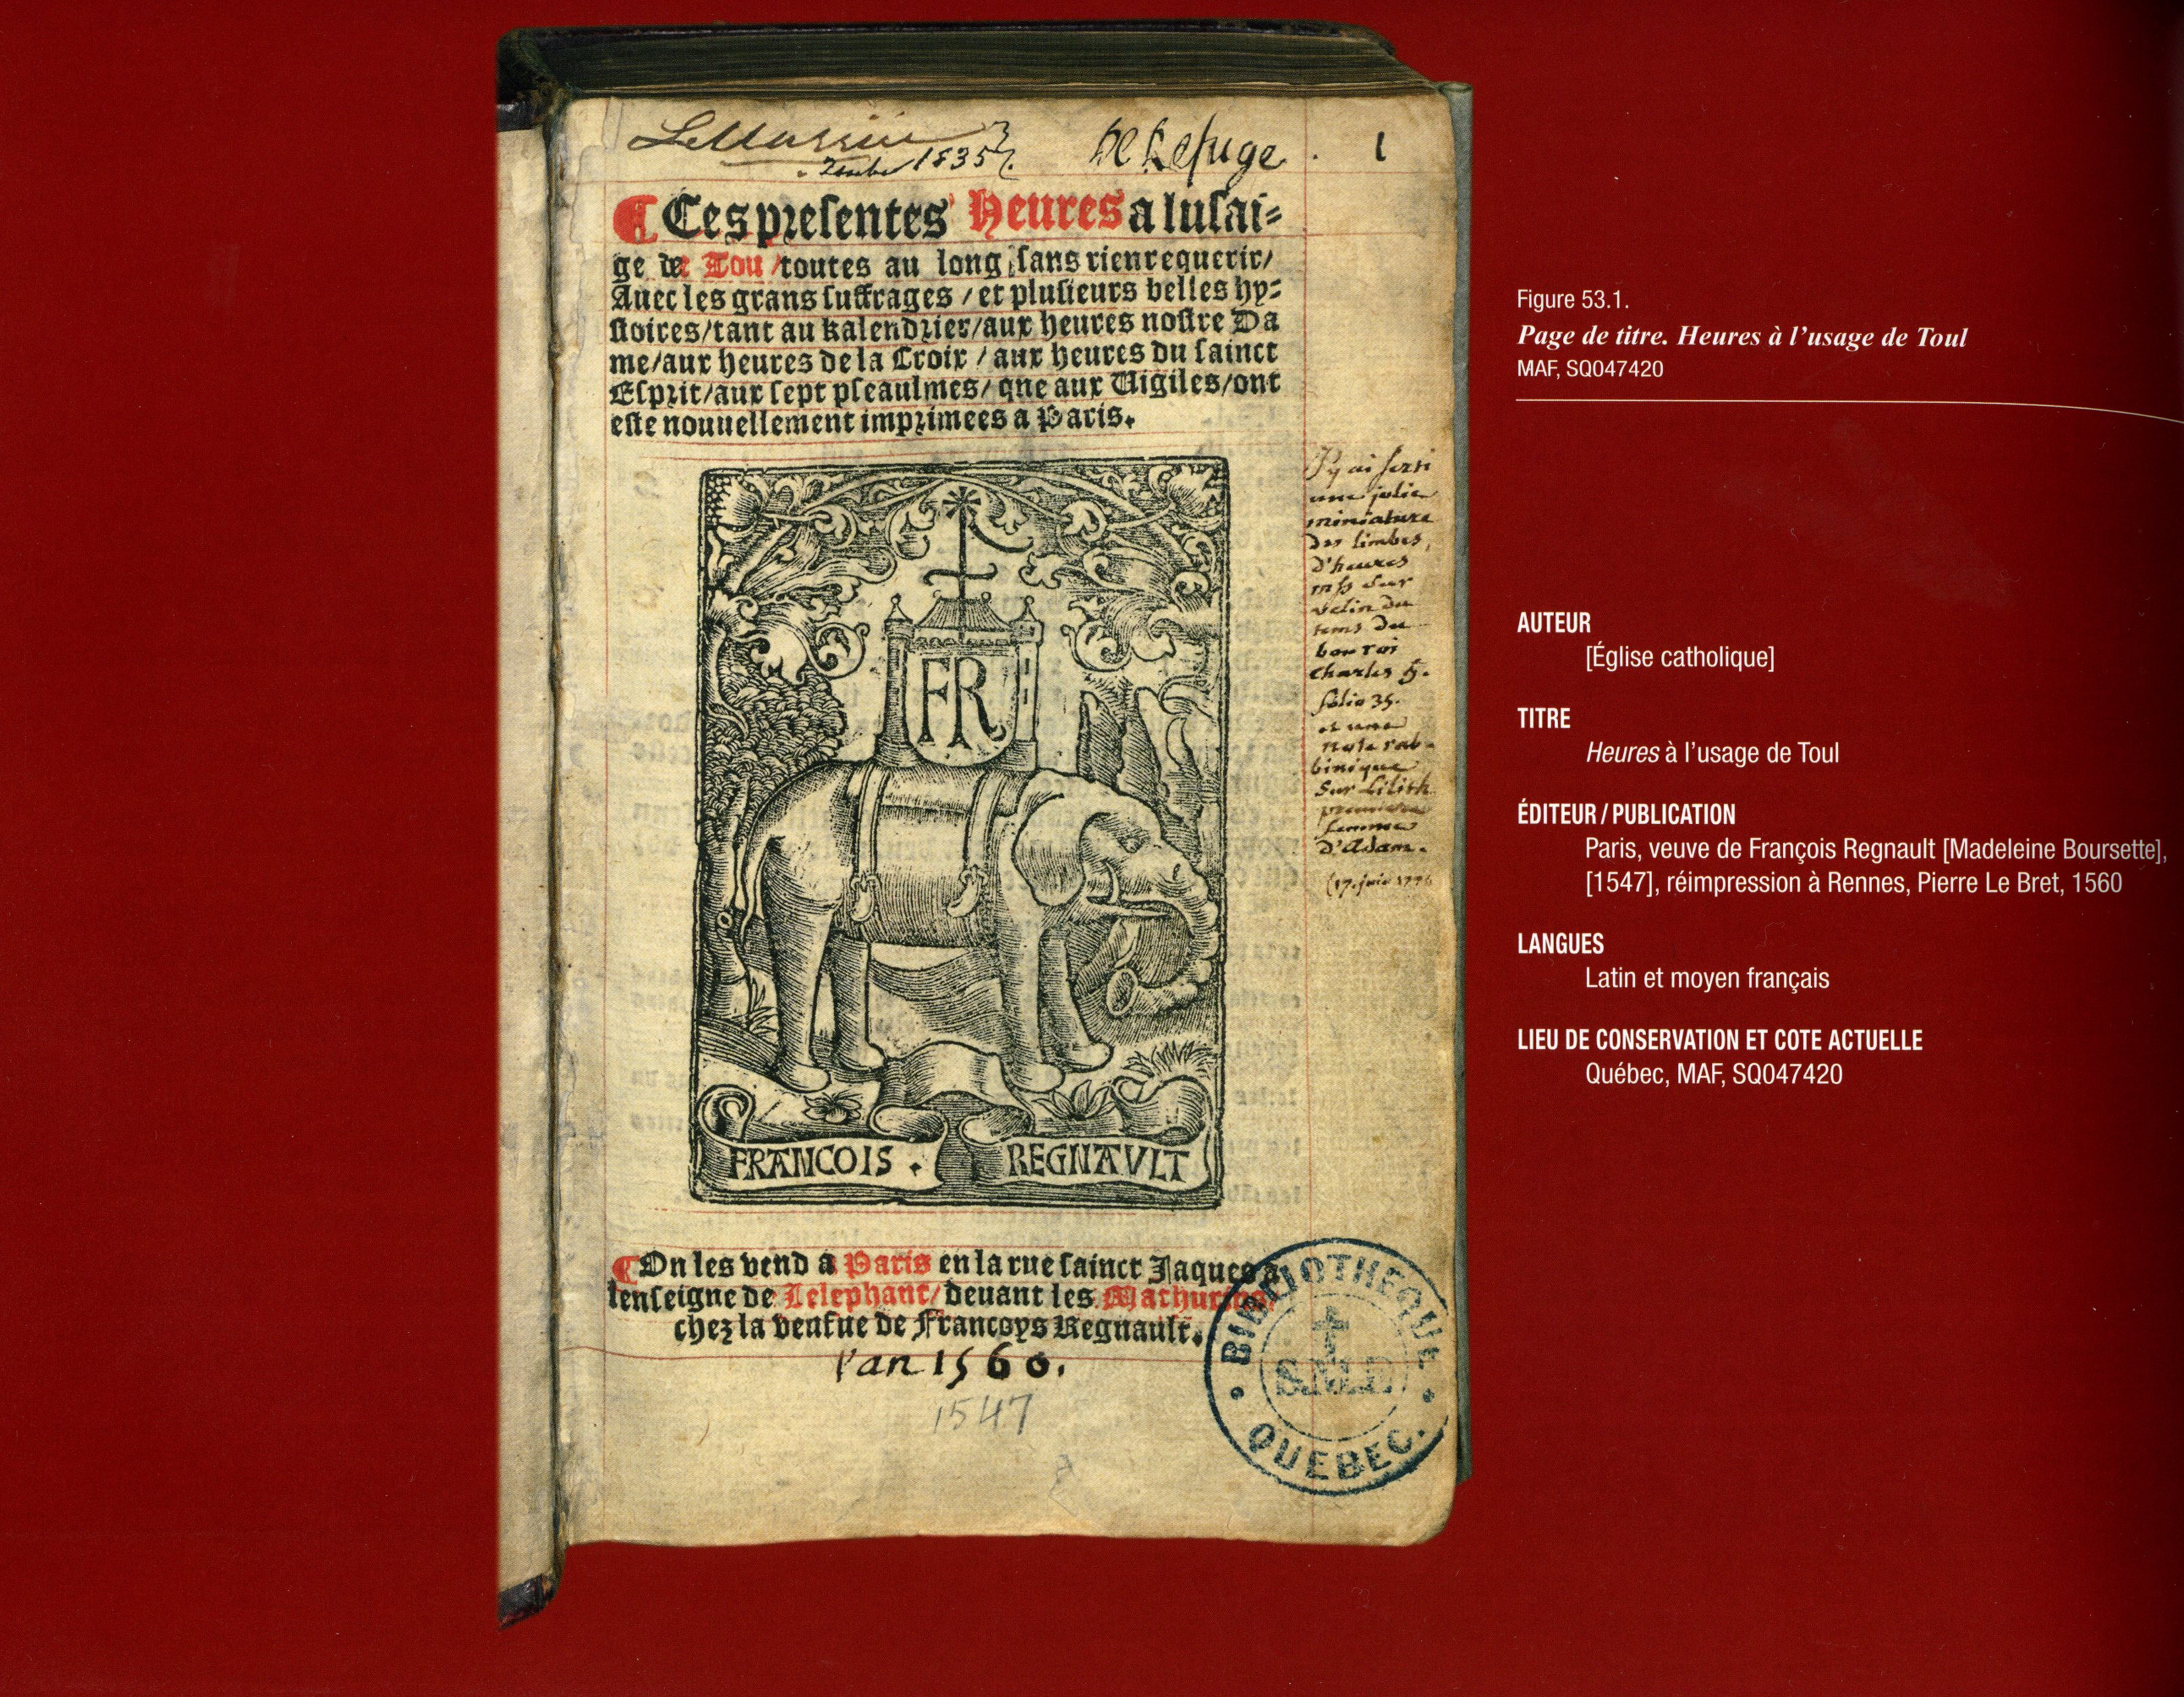 LeMarié
1835
De Refuge . 1
¶ Ces presentes Heures a lusai-
ge de Tou / toutes au long / sans rien requerir /
Auec les grans suffrages / et plusieurs belles hy-
stoires / tant au kalendrier / aux heures nostre Da
me / aux heures de la Croix / aux heures du sainct
Esprit / aux sept pseaulmes / que aux Vigiles / ont
este nouuellement imprimees a Paris.
J'y ai serti
une jolie
miniature
des limbes,
d'heures
mss sur
velin du
tems du
bon roi
Charles 5.
folio 35.
et une
note rab-
binique
sur Lilith
premiere
femme
d'Adam.
(17. juin 1776
FR
FRANCOIS . REGNAVLT
¶ On les vend a Paris en la rue sainct Jaques a
lenseigne de Lelephant / deuant les Mathurins /
chez la veufue de Francoys Regnault.
l'an 1560.
1547
BIBLIOTHEQUE
S.M.E.
QUEBEC.
Figure 53.1.
Page de titre. Heures à l'usage de Toul
MAF, SQ047420
AUTEUR
[Église catholique]
TITRE
Heures à l'usage de Toul
ÉDITEUR / PUBLICATION
Paris, veuve de François Regnault [Madeleine Boursette],
[1547], réimpression à Rennes, Pierre Le Bret, 1560
LANGUES
Latin et moyen français
LIEU DE CONSERVATION ET COTE ACTUELLE
Québec, MAF, SQ047420